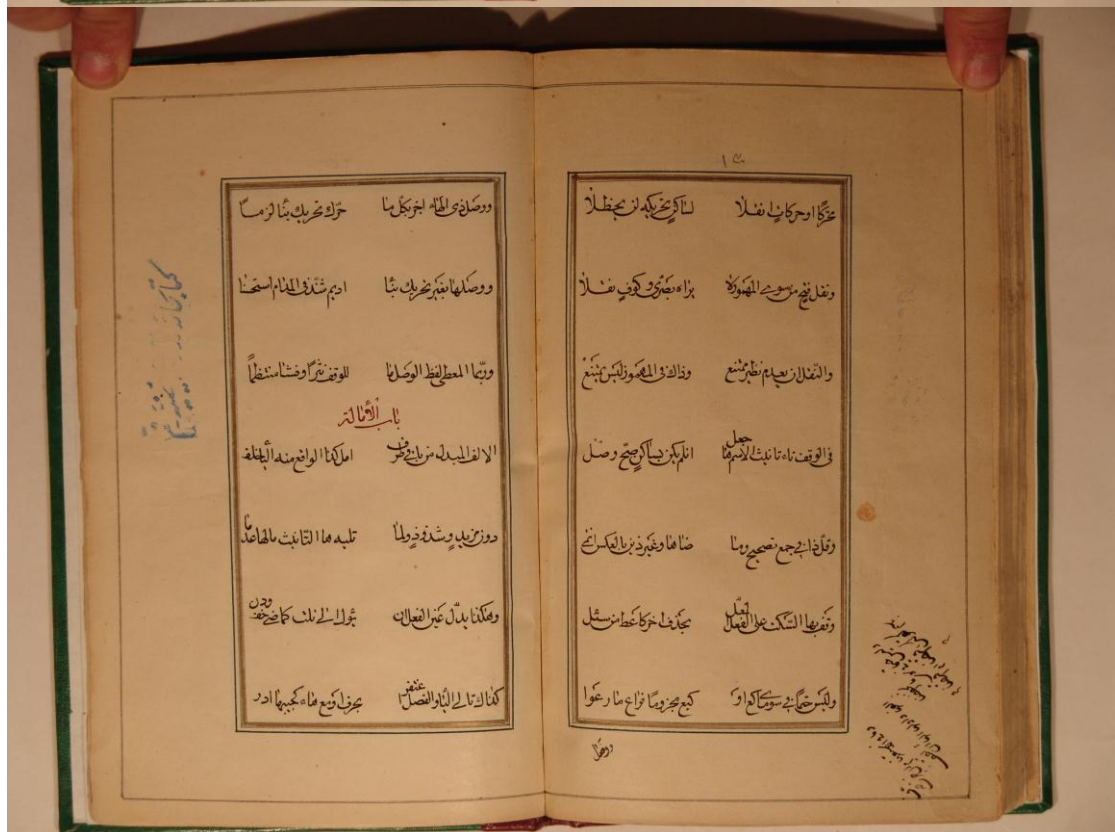 ۱۴
محرّكا او حركات انقلا لساكن تحريكه لن يحظلا
ونقل فتح من سوى المهموز لا يراه بصرى وكوف نقلا
والنّقل ان يعدم نظير ممتنع وذاك فى المهموز ليس يمتنع
فى الوقف تاء تانيث الاسم ها جعل ان لم يكن بساكن صحّ وصل
وقلّ ذا فى جمع تصحيح وما ضاها وغير ذين بالعكس انتمى
وقف بها السّكت على الفعل المعلّ بحذف اخر كاعط من سئل
وليس حتما فى سوى ما كع او كيع مجزوما فراع ما رعوا
ووصل
ووصل ذى الهاء اجز بكل ما حرّك تحريك بناء لزما
ووصلها بغير تحريك بنا اديم شذّ فى المدام استحسنا
وربّما اعطى لفظ الوصل ما للوقف نثرا وفشا منتظما
باب الأمالة
الالف المبدل من يا فى طرف امل كذا الواقع منه اليا خلف
دون مزيد وشذوذ ولما تليه ها التّانيث ما الها عدما
وهكذا بدل عين الفعل ان يؤل الى فلت كماضى خف ودن
كذاك تالى اليا والفصل اغتفر بحرف او مع هاء كجيبها ادر